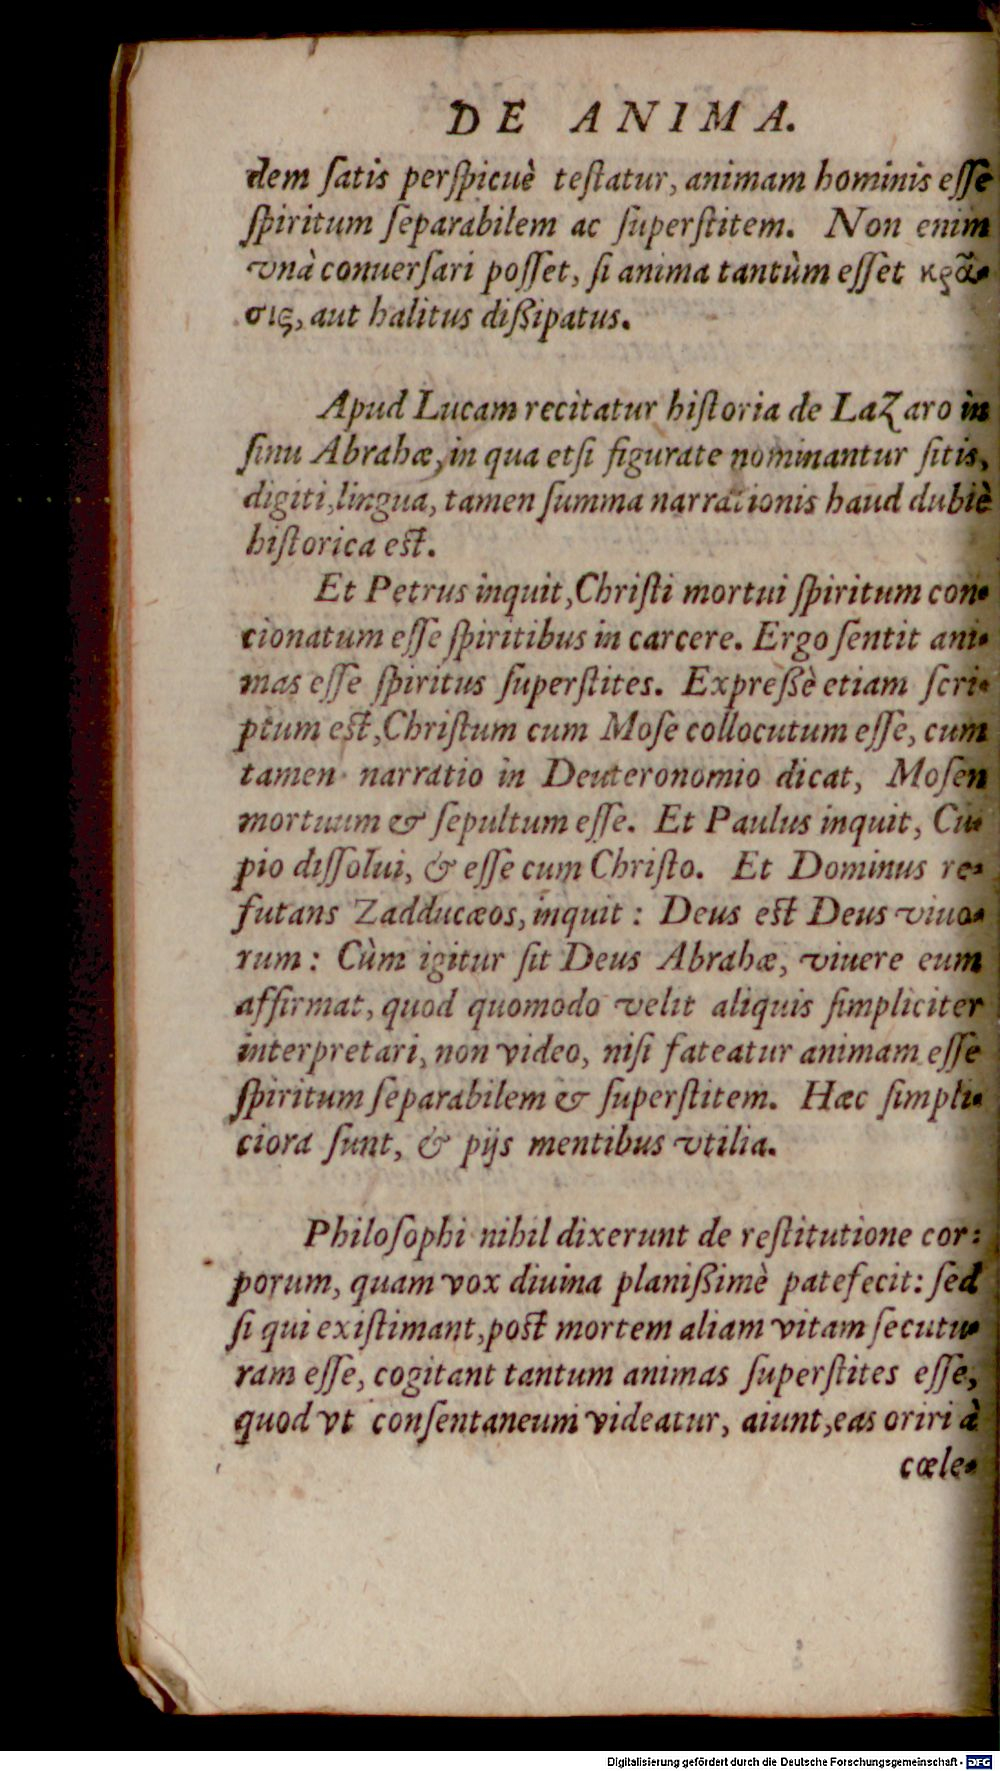 DE ANIMA.
dem ſatis perſpicuè teſtatur, animam hominis eſſe
ſpiritum ſeparabilem ac ſuperſtitem. Non enim
vnà conuerſari poſſet, ſi anima tantùm eſſet κρᾶ-
σις, aut halitus dißipatus.
Apud Lucam recitatur hiſtoria de Lazaro in
ſinu Abrahæ, in qua etſi figurate nominantur ſitis,
digiti, lingua, tamen ſumma narrationis haud dubiè
hiſtorica eſt.
Et Petrus inquit, Chriſti mortui ſpiritum con-
cionatum eſſe ſpiritibus in carcere. Ergo ſentit ani-
mas eſſe ſpiritus ſuperſtites. Expreßè etiam ſcri-
ptum eſt, Chriſtum cum Moſe collocutum eſſe, cum
tamen narratio in Deuteronomio dicat, Moſen
mortuum & ſepultum eſſe. Et Paulus inquit, Cu-
pio diſſolui, & eſſe cum Chriſto. Et Dominus re-
futans Zadducæos, inquit: Deus eſt Deus viuo-
rum: Cùm igitur ſit Deus Abrahæ, viuere eum
affirmat, quod quomodo velit aliquis ſimpliciter
interpretari, non video, niſi fateatur animam eſſe
ſpiritum ſeparabilem & ſuperſtitem. Hæc ſimpli-
ciora ſunt, & pijs mentibus vtilia.
Philoſophi nihil dixerunt de reſtitutione cor:
porum, quam vox diuina planißimè patefecit: ſed
ſi qui exiſtimant, poſt mortem aliam vitam ſecutu-
ram eſſe, cogitant tantum animas ſuperſtites eſſe,
quod vt conſentaneum videatur, aiunt, eas oriri à
cœle-
Digitalisierung gefördert durch die Deutsche Forschungsgemeinschaft - DFG